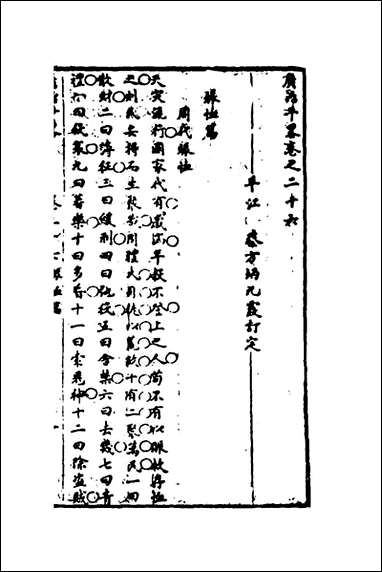 廣治平畧卷之二十六
平江 蔡方炳九霞訂定
賑恤篇
周代賑恤
天災流行國家代有歲沴年饑不登上之人苟不有以賑救存恤
之則民安得不生聚哉周禮大司徒以荒政十有二聚萬民一曰
散財二曰薄征三曰緩刑四曰弛役五曰舍禁六曰去幾七曰眚
禮八曰殺哀九曰蕃樂十曰多昏十一曰索鬼神十二曰除盜賊